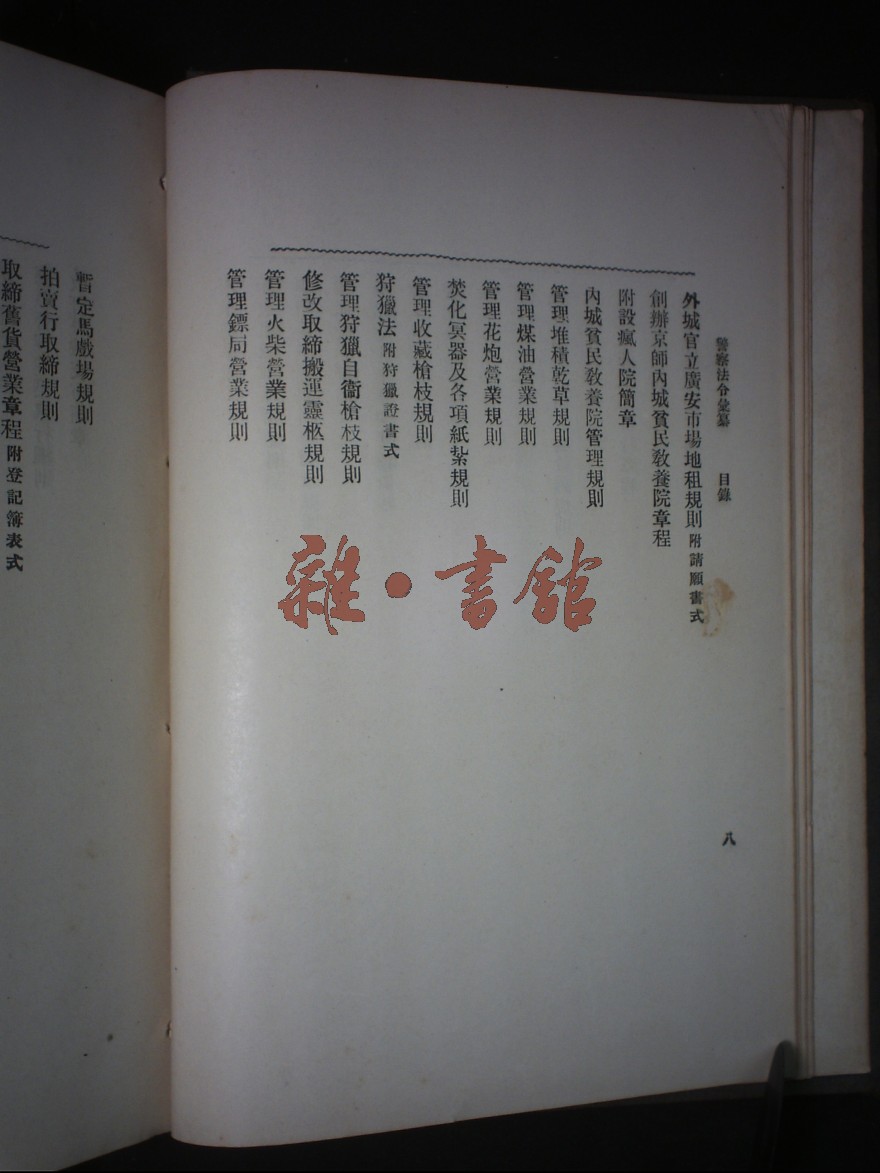 警察法令彙纂　目錄
外城官立廣安市場地租規則 附請願書式
創辦京師內城貧民教養院章程
附設瘋人院簡章
內城貧民教養院管理規則
管理堆積乾草規則
管理煤油營業規則
管理花炮營業規則
焚化冥器及各項紙紮規則
管理收藏槍枝規則
狩獵法 附狩獵證書式
管理狩獵自衞槍枝規則
修改取締搬運靈柩規則
管理火柴營業規則
管理鏢局營業規則
八
暫定馬戲場規則
拍賣行取締規則
取締舊貨營業章程 附登記簿表式
雜·書館